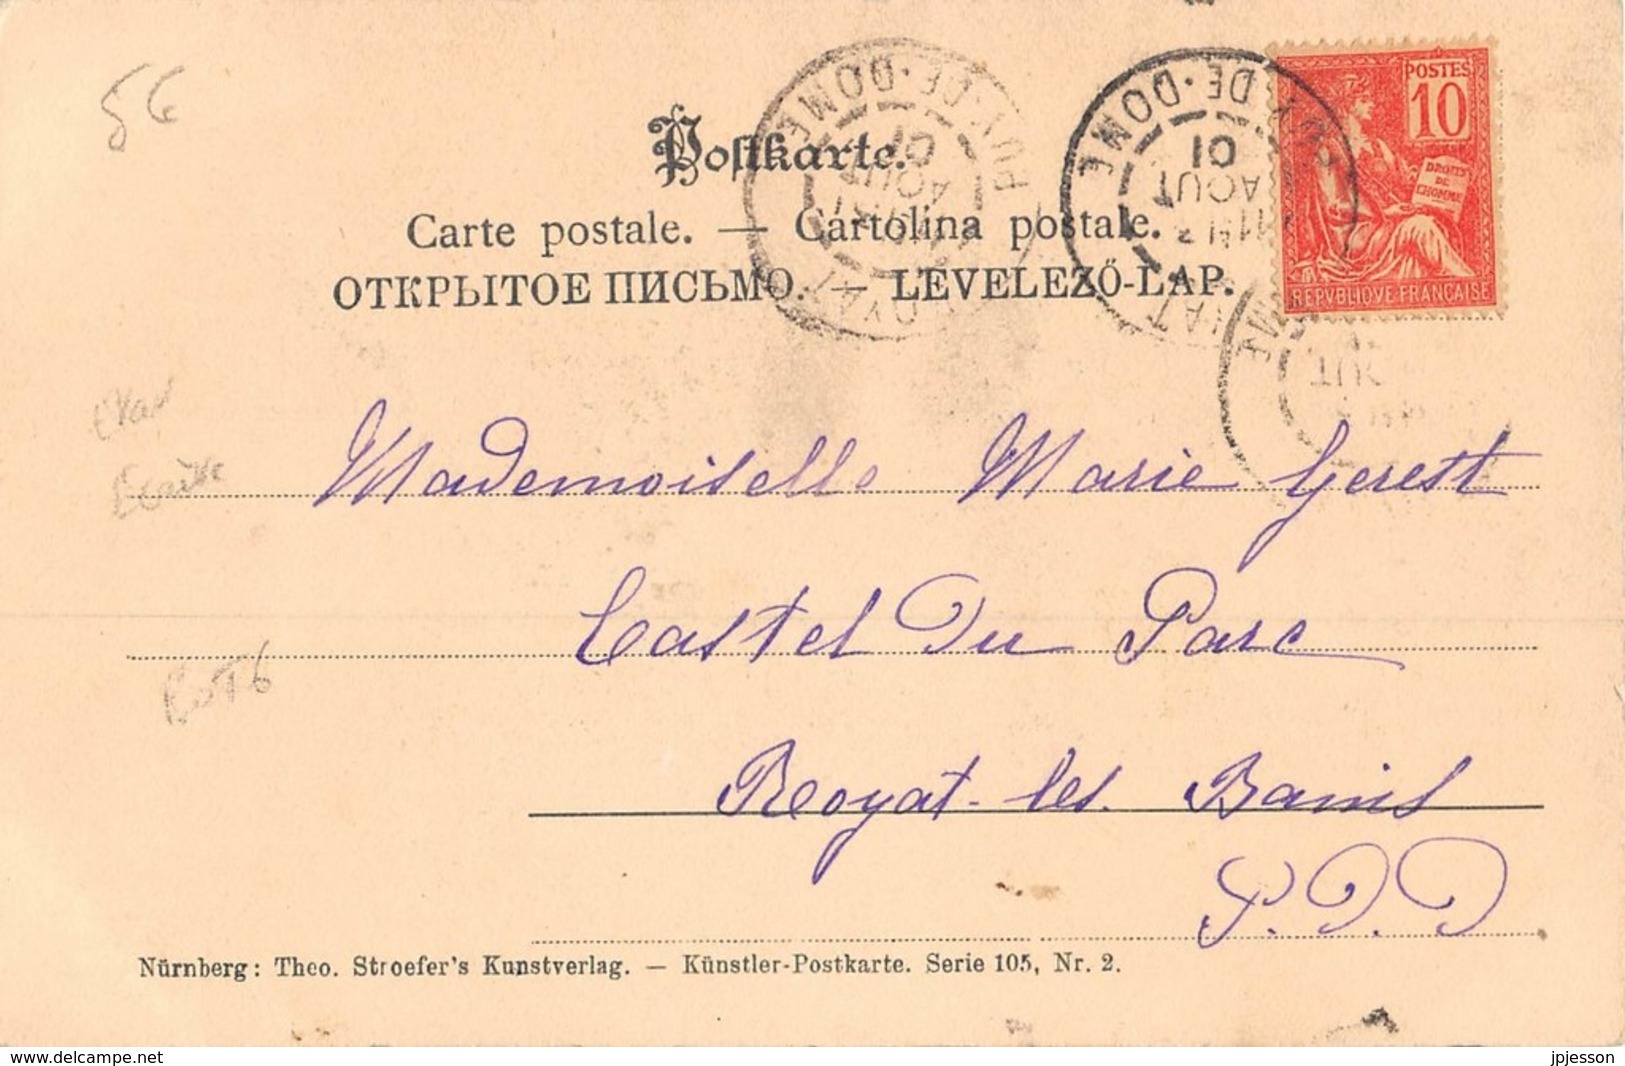 56
POSTES
10
DROITS
DE
L'HOMME
REPVBLIQVE FRANCAISE
PUY-DE-DOME
01
AOUT
PUY-DE-DOME
01
AOUT
Postkarte.
Carte postale. — Cartolina postale.
ОТКРЫТОЕ ПИСЬМО. — LEVELEZŐ-LAP.
Mademoiselle Marie Gerest
Castel Du Parc
Royat-les-Bains
P.D.D
Nürnberg: Theo. Stroefer's Kunstverlag. — Künstler-Postkarte. Serie 105, Nr. 2.
www.delcampe.net
jpjesson